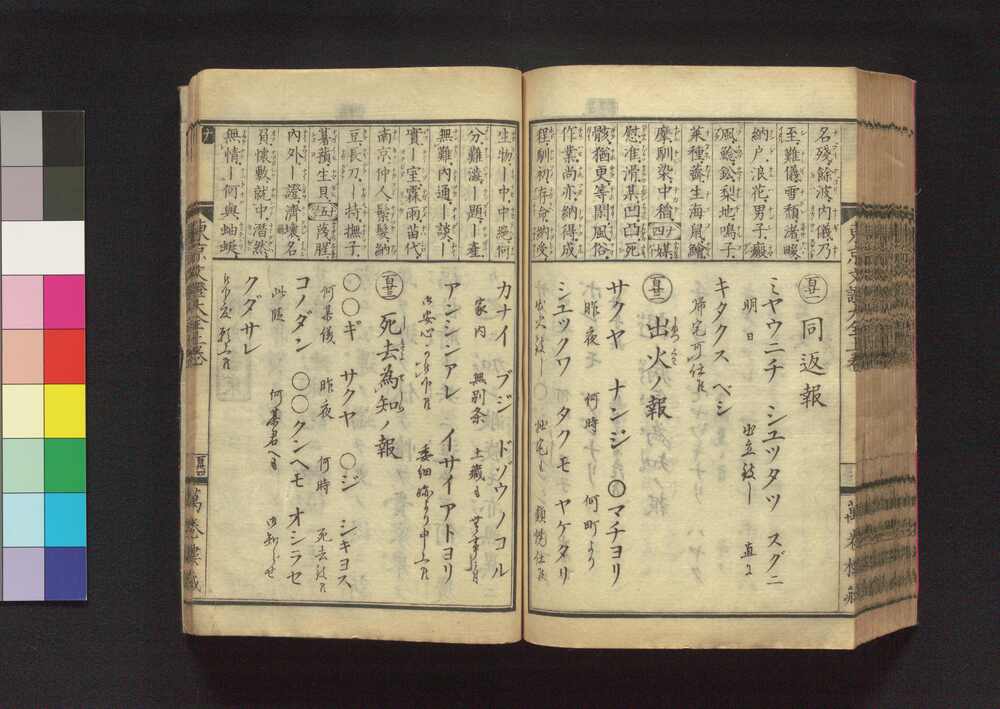 名殘餘波内儀乃
至難儀雪頽滿
納戸浪花男子癜
風鯰鈆梨地鳴子
菜種薺生海鼠鱠
摩馴染中稽 四 媒
慰准滑某凹凸死
骸猶更等閑風俗
作業尚亦納得成
程馴初存命納受
同返報
ミヤウニチ シユツタツ スグニ
明日 出立致し 直ニ
キタクス ベシ
帰宅可仕候
出火ノ報
サクヤ ナンジ 〇マチヨリ
昨夜 何時 何町より
シユツクワ タクモ ヤケタリ
出火致し 〇 拙宅も 類焼仕候
生物ー中
分難澁ー題ー産
無難内通ー談ー
實ー室霖雨苗代
南京仲人鬚髮納
豆長刀ー持撫子
蕃蘋生貝 五 落腥
内外ー證濟壊名
負懐數就中潜然
無情ー何與蚰蜒
ナ
カナイ ブジ ドゾウノコル
家内 無別条 土蔵も
アンシンアレ イサイアトヨリ
御安心 委細跡より申上候
死去為知ノ報
〇〇ギ サクヤ 〇ジ シキヨス
何某儀 昨夜 何時 死去致候
コノダン 〇〇クンヘモ オシラセ
此段 何某君へも 御知らせ
クダサレ
東京文證大全上卷
萬卷樓藏